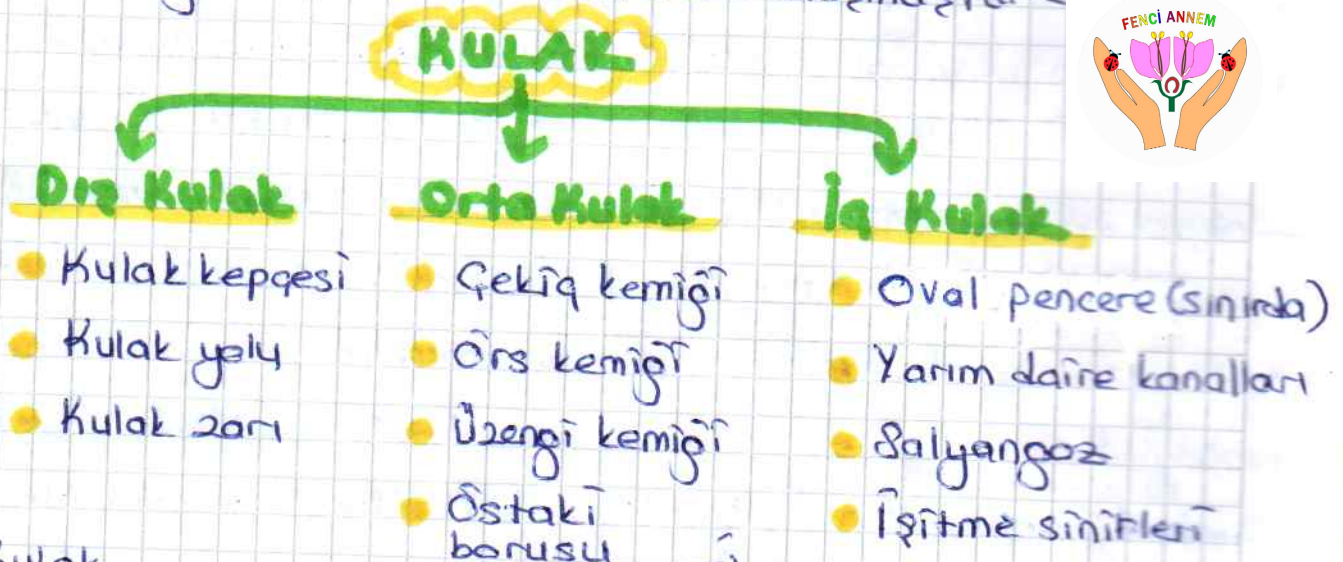 FENCİ ANNEM
KULAK
Dış Kulak
Kulak kepçesi
Kulak yolu
Kulak zarı
Orta Kulak
Çekiç kemiği
Örs kemiği
Üzengi kemiği
Östaki
borusu
İç Kulak
Oval pencere (sınırda)
Yarım daire kanalları
Salyangoz
İşitme sinirleri